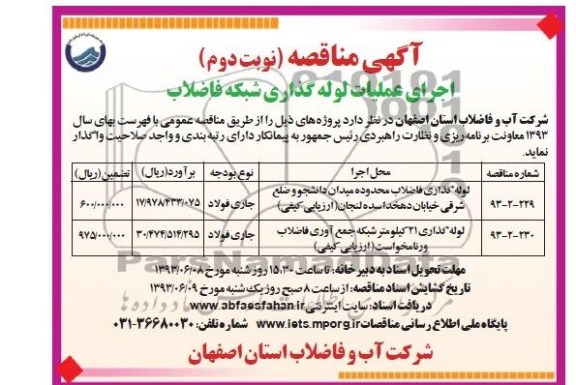 آگهی مناقصه (نوبت دوم)
اجرای عملیات لوله گذاری شبکه فاضلاب
شرکت آب و فاضلاب استان اصفهان در نظر دارد پروژه های ذیل را از طریق مناقصه عمومی با فهرست بهای سال
۱۳۹۳ معاونت برنامه ریزی و نظارت راهبردی رئیس جمهور به پیمانکار دارای رتبه بندی و واجد صلاحیت واگذار
نماید.
شماره مناقصه محل اجرا نوع بودجه برآورد(ریال) تضمین(ریال)
۹۳-۲-۲۲۹ لوله گذاری فاضلاب محدوده میدان دانشجو و ضلع شرقی خیابان دهخدا سده لنجان (ارزیابی کیفی) جاری فولاد ۱۷/۹۷۸/۴۳۳/۰۷۵ ۶۰۰/۰۰۰/۰۰۰
۹۳-۲-۲۳۰ لوله گذاری ۲۱ کیلومتر شبکه جمع آوری فاضلاب ورنامخواست (ارزیابی کیفی) جاری فولاد ۳۰/۴۷۴/۵۱۴/۲۹۵ ۹۷۵/۰۰۰/۰۰۰
مهلت تحویل اسناد به دبیرخانه: تا ساعت ۱۵:۳۰ روز شنبه مورخ ۱۳۹۳/۰۶/۰۸
تاریخ گشایش اسناد مناقصه: از ساعت ۸ صبح روز یکشنبه مورخ ۱۳۹۳/۰۶/۰۹
دریافت اسناد: سایت اینترنتی www.abfaesfahan.ir
پایگاه ملی اطلاع رسانی مناقصات www.iets.mporg.ir شماره تلفن: ۰۳۱-۳۶۶۸۰۰۳۰
شرکت آب و فاضلاب استان اصفهان
ParsNamadData